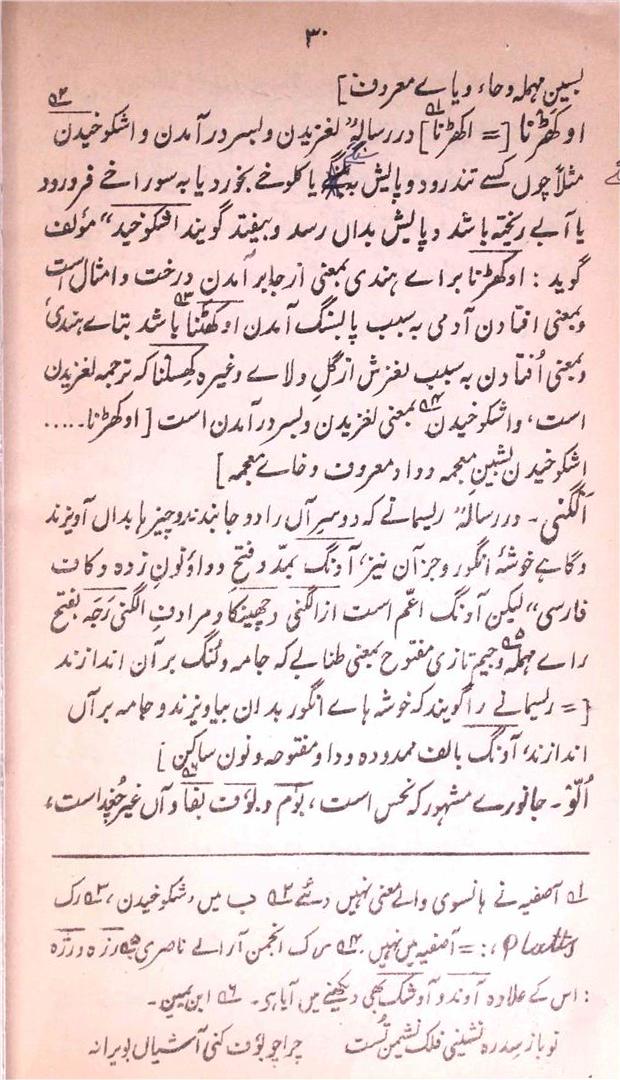 ۳۰
بسین مہملہ و حاء و یاے معروف]
اوکھڑنا [= اکھڑنا] ۱ در رسالہ "لغزیدن و بسر در آمدن و اشکوخیدن ۲
مثلاً چوں کسے تند رود و پایش بہ سنگے یا کلوخے بخورد یا بہ سوراخے فرو رود
یا آبے ریختہ باشد و پایش بداں رسد و بیفتد گویند اشکوخید" مؤلف
گوید : اوکھڑنا براے ہندی بمعنی از جا بر آمدن درخت و امثال است
و بمعنی افتادن آدمی بہ سبب پا بسنگ آمدن اوکھٹنا ۳ باشد بتاے ہندی،
و بمعنی اُفتادن بہ سبب لغزش از گِل و لاے وغیرہ کھسلنا کہ ترجمہ لغزیدن
است، و اشکوخیدن ۴ بمعنی لغزیدن و بسر در آمدن است [اوکھڑنا.....
اشکوخیدن بشین معجمہ و واو معروف و خاے معجمہ]
الگنی۔ در رسالہ "ریسمانے کہ دو سر آں را دو جا بندند و چیزہا بداں آویزند
و گاہے خوشۂ انگور و جز آن نیز، آونگ بمدّ و فتح و واؤ نون زدہ و کاف
فارسی" لیکن آونگ اعّم است از الگنی و چھینکا و مرادف الگنی رَجَہ بفتح
راے مہملہ ۵ و جیم تازی مفتوح بمعنی طنابے کہ جامہ و لنگ بر آن اندازند
[= ریسمانے را گویند کہ خوشہ ہاے انگور بدان بیاویزند و جامہ بر آں
اندازند، آونگ بالف ممدودہ و واو مفتوحہ و نون ساکن]
اُلّو۔ جانورے مشہور کہ نحس است، بُوم و بُوف ۶ بفا و آں غیر جُغد است،
۱ آصفیہ نے ہانسوی والے معنی نہیں دئے ۲ ب میں، شکوخیدن، ۳ رک
Platts ،: = آصفیہ میں نہیں۔ ۴ رک انجمن آرائے ناصری ۵ رزہ و رژہ
: اس کے علاوہ آوند و آوشنگ بھی دیکھنے میں آیا ہے۔ ۶ ابن یمین۔
تو باز سدرہ نشینی فلک نشیمن تُست چرا چو بُوف کنی آشیاں بویرانہ